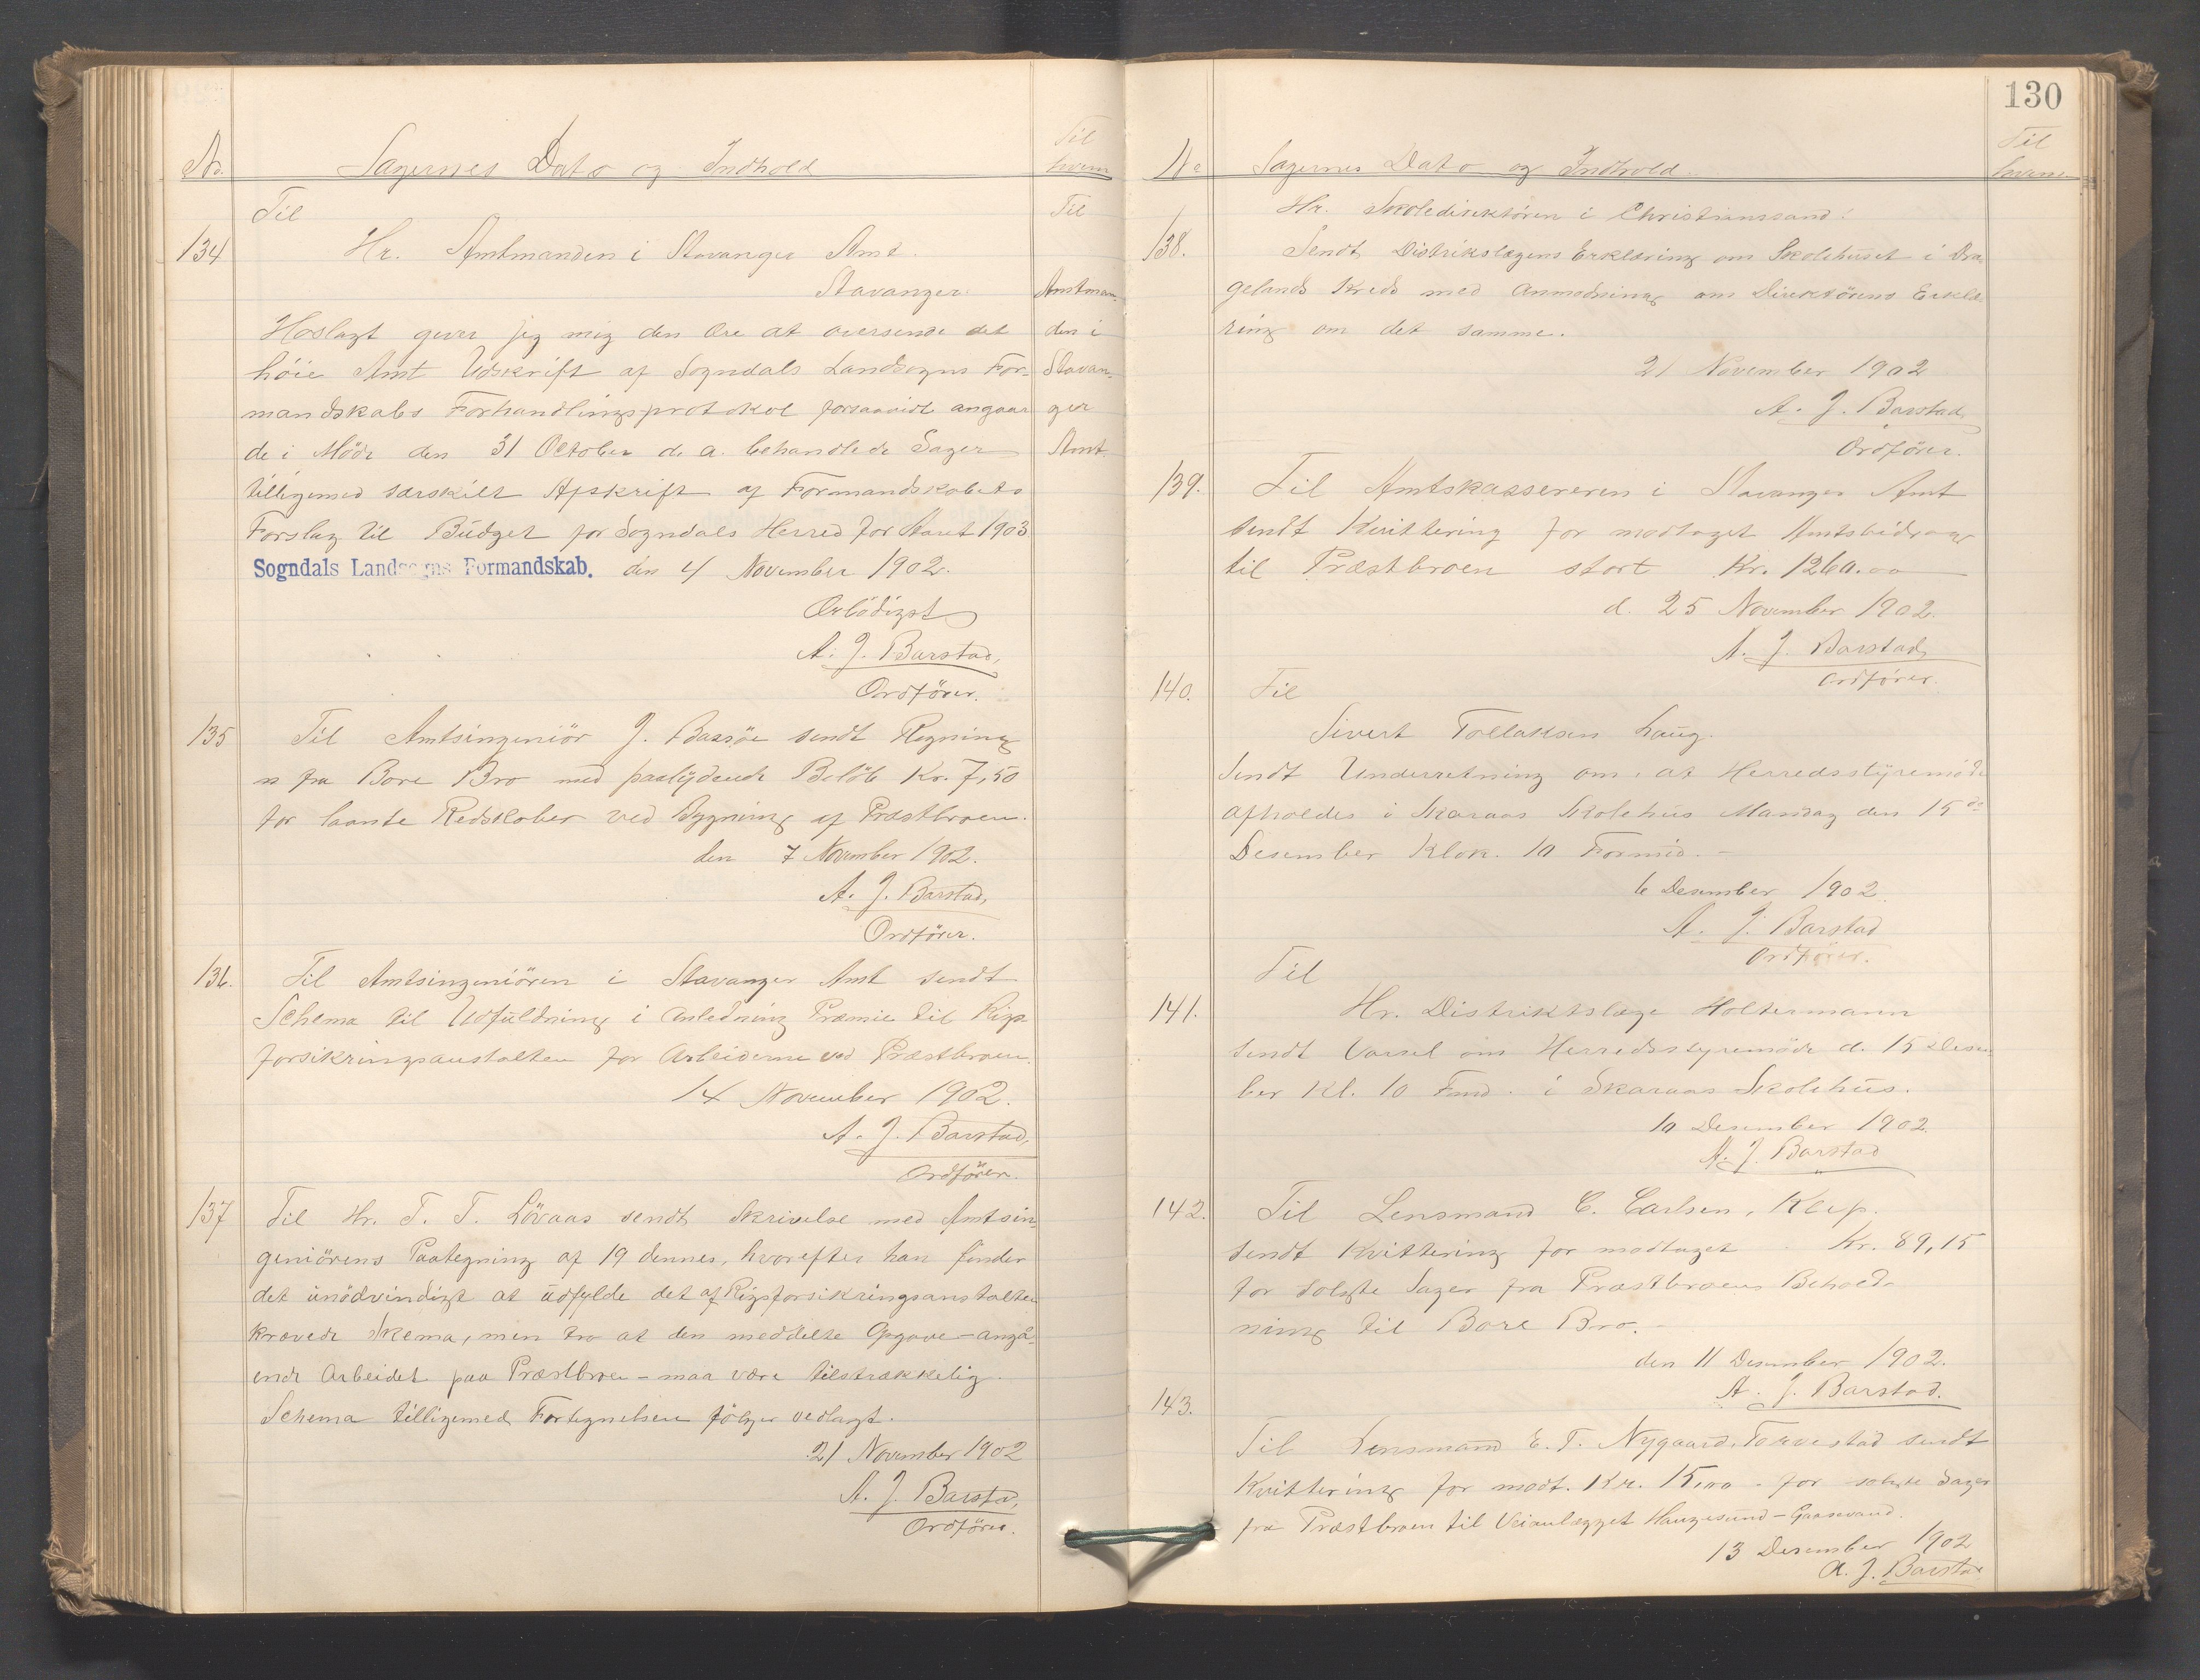 Nr. Sagernes Dato og Indhold Til hvem
Til Til
134 Hr. Amtmanden i Stavanger Amt.
Stavanger. Amtman-
Hoslagt giver jeg mig den Ære at oversende det den i
höie Amt Udskrift af Sogndals Landsogns For- Stavan-
mandskabs Forhandlingsprotokol forsaavidt angaar ger
de i Möde den 31 October d. a. behandlede Sager Amt.
tilligemed særskilt Afskrift af Formandskabets
Forslag til Budget for Sogndals Herred for Aaret 1903
Sogndals Landsogns Formandskab. den 4 November 1902.
Ærbödigst
A. J. Barstad,
Ordförer.
135 Til Amtsingeniör J. Bassöe sendt Regning
fra Bore Bro med paalydende Belöb Kr. 7,50
for laante Redskaber ved Bygning af Præstbroen.
den 7 November 1902.
A. J. Barstad,
Ordförer.
136. Til Amtsingeniören i Stavanger Amt sendt
Schema til Udfuldning i Anledning Præmie til Rigs
forsikringsanstalten for Arbeiderne ved Præstbroen.
14 November 1902.
A. J. Barstad,
Ordförer.
137 Til Hr. T. T. Lövaas sendt Skrivelse med Amtsin-
geniörens Paategning af 19 dennes, hvorefter han finder
det unödvindigt at udfylde det af Rigsforsikringsanstalten
krævede Skema, men tro at den meddelte Opgave - angå-
ende Arbeidet paa Præstbroen - maa være tilstrækkelig.
Schema tilligemed Fortegnelsen fölger vedlagt.
21 November 1902
A. J. Barstad,
Ordförer.
130
No Sagernes Dato og Indhold Til hvem
Hr. Skoledirektören i Christianssand.
138. Sendt Distrikslægens Erklæring om Skolehuset i Dra
gelands Kreds med Anmodning om Direktörens Erklæ
ring om det samme.
21 November 1902
A. J. Barstad
Ordförer.
139. Til Amtskassereren i Stavanger Amt
sendt Kvittering for modtaget Amtsbidrag
til Præstbroen stort Kr. 1260.00
d. 25 November 1902.
A. J. Barstad,
Ordförer.
140. Til
Sivert Tollaksen Haug.
Sendt Underretning om, at Herredsstyremöde
afholdes i Skaraas Skolehus Mandag den 15de
Desember Klok. 10 Formid. -
6 Desember 1902.
A. J. Barstad
Ordförer.
Til
141. Hr. Distriktslæge Holtermann
sendt Varsel om Herredsstyremöde d. 15 Desem-
ber Kl. 10 Fmd. i Skaraas Skolehus.
10 Desember 1902.
A. J. Barstad
142. Til Lensmand C. Carlsen, Klep.
sendt Kvittering for modtaget Kr. 89,15
for solgte Sager fra Præstbroens Behold-
ning til Bore Bro. -
den 11 Desember 1902.
A. J. Barstad.
143.
Til Lensmand E. T. Nygaard, Torvestad sendt
Kvittering for modt. Kr. 15,00 for solgte Sager
fra Præstbroen til Veianlægget Haugesund - Gaasevand.
13 Desember 1902
A. J. Barstad